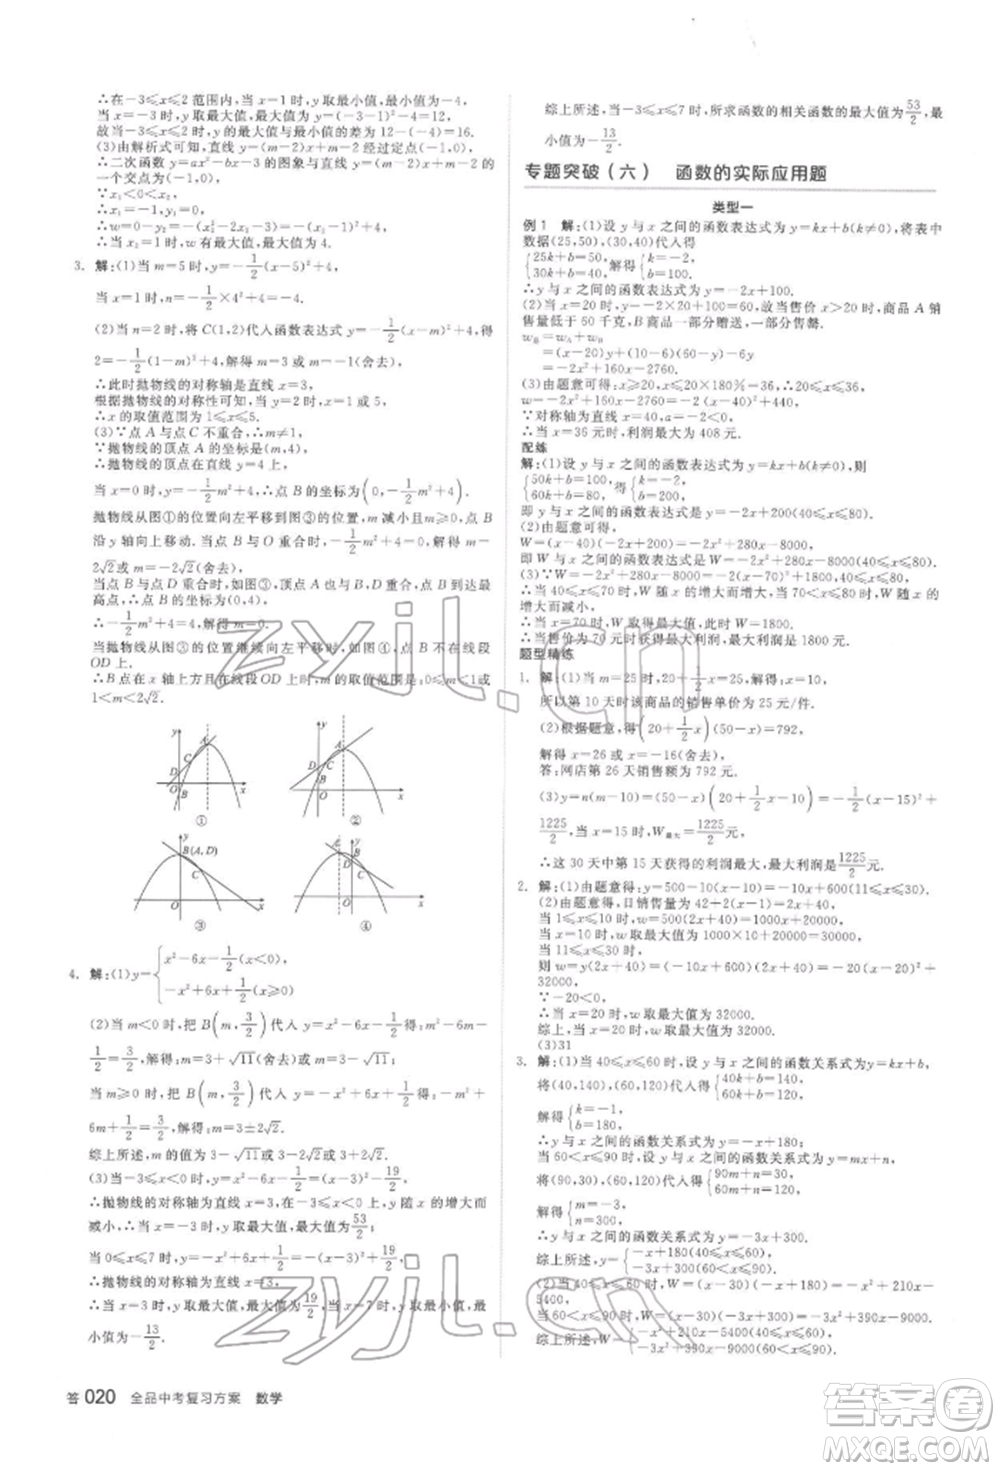 ∴在-3≤x≤2 范围内,当 x=1 时,y 取最小值,最小值为-4,
当 x=-3 时,y 取最大值,最大值为(-3-1)²-4=12,
故当-3≤x≤2 时,最大值与最小值的差为 12-(-4)=16.
(3)由解析式可知,直线 y=-3x-4 经过定点(0,-4).
∴二次函数 y=ax²-bx-3 的图象与直线 y=-3x-4
3. 解:(1)当 m=5 时,y=-1/2(x-5)²+4,
当 x=1 时,n=-1/2×4²+4=-4.
(2)当 n=2 时,将 C(1,2)代入函数表达式 y=-1/2(x-m)²+4,得
2=-1/2(1-m)²+4,解得 m=3 或 m=-1(舍去),
∴此时抛物线的对称轴是直线 x=3.
根据抛物线的对称性可知,当 y=2 时,x=1 或 5,
∴x 的取值范围为 1≤x≤5.
(3)∵点 A 与点 C 不重合,∴m≠1.
∵抛物线的顶点 A 的坐标为(m,4),
∴抛物线的顶点在直线 y=4 上,
当 x=0 时,y=-1/2m²+4,∴点 B 的坐标为(0,-1/2m²+4).
抛物线从图①的位置向左平移到图②的位置,m 减小,点 B
沿 y 轴向上移动.当点 B 与点 O 重合时,-1/2m²+4=0,解得 m=
2√2或 m=-2√2(舍去).
当点 B 与点 D 重合时,如图③,顶点 A 也与点 B,D 重合,点 B 到达最
高点,∴点 B 的坐标为(0,4),
∴-1/2m²+4=4,解得 m=0.
当抛物线从图③的位置继续向左平移时,如图④,点 B 不在线段
OD 上.
∴点 B 在 x 轴上方且在线段 OD 上时,m 的取值范围是 0≤m<1 或
1<m<2√2.
① ②
③ ④
4. 解:(1)y={x²-6x-1/2(x<0),
-x²+6x+1/2(x≥0)
(2)当 m<0 时,把 B(m,3/2)代入 y=x²-6x-1/2,得 m²-6m-
1/2=3/2,解得 m=3+√11(舍去)或 m=3-√11;
当 m≥0 时,把 B(m,3/2)代入 y=-x²+6x+1/2,得-m²+
6m+1/2=3/2,解得 m=3+2√2或 m=3-2√2.
综上所述,m 的值为 3-√11或 3+2√2或 3-2√2.
(3)当-3≤x<0 时,y=x²-6x-1/2=(x-3)²-19/2,
抛物线的对称轴为直线 x=3,此时 y 随 x 的增大而
减小,∴当 x=-3 时,y 取最大值,最大值为53/2;
当 0≤x≤7 时,y=-x²+6x+1/2=-(x-3)²+19/2,
抛物线的对称轴为直线 x=3,
当 x=3 时,y 取最大值,最大值为19/2,当 x=7 时,y 取最小值,最
小值为-13/2.
综上所述,当-3≤x≤7 时,所求函数的相关函数的最大值为53/2,最
小值为-13/2.
专题突破(六) 函数的实际应用题
类型一
例 1 解:(1)设 y 与 x 之间的函数表达式为 y=kx+b(k≠0),将表中
数据(25,50),(30,40)代入得
{25k+b=50,
30k+b=40, 解得{k=-2,
b=100.
∴y 与 x 之间的函数表达式为 y=-2x+100.
(2)当 x=20 时,y=-2×20+100=60,故当售价 x>20 时,商品 A
销售量低于 60 千克,B 商品一部分赠送,一部分售罄.
=-2x²+160x-2760.
(3)由题意可得:x≥20,x≤20×180%=36,∴20≤x≤36.
w=-2x²+160x-2760=-2(x-40)²+440.
∵对称轴为直线 x=40,a=-2<0,
∴当 x=36 元时,利润最大为 408 元.
配练
解:(1)设 y 与 x 之间的函数表达式为 y=kx+b(k≠0),则
即 y 与 x 之间的函数表达式为 y=-2x+200(40≤x≤80).
(2)由题意可得,
W=(x-40)(-2x+200)=-2x²+280x-8000,
即 W 与 x 之间的函数表达式是 W=-2x²+280x-8000(40≤x≤80).
(3)∵W=-2x²+280x-8000=-2(x-70)²+1800,40≤x≤80,
∴当 40≤x≤70 时,W 随 x 的增大而增大,当 70<x≤80 时,W 随 x 的
增大而减小,
∴当 x=70 时,W 取得最大值,此时 W=1800.
∴当售价为 70 元时获得最大利润,最大利润是 1800 元.
题型精练
1. 解:(1)当 m=25 时,20+1/2x=25,解得 x=10,
所以第 10 天时该商品的销售单价为 25 元/件.
(2)根据题意,得(20+1/2x)(50-x)=792,
解得 x=26 或 x=-16(舍去),
答:网店第 26 天销售额为 792 元.
(3)y=n(m-10)=(50-x)(20+1/2x-10)=-1/2(x-15)²+
1225/2,当 x=15 时,W最大=1225/2元,
∴这 30 天中第 15 天获得的利润最大,最大利润是1225/2元.
2. 解:(1)由题意得:y=500-10(x-10)=600-10x(11≤x≤30).
当 x=10 时,w 取最大值为 1000×10+20000=30000.
当 11≤x≤30 时,
32000.
∵-20<0,
∴当 x=20 时,w 取得最大值,最大值为 32000.
综上,当 x=20 时,w 最大,最大值为 32000 元.
(3)31
3. 解:(1)当 40≤x≤60 时,设 y 与 x 之间的函数关系式为 y=kx+b,
将(40,140),(60,120)代入得{40k+b=140,
60k+b=120,
解得{k=-1,
b=180.
∴y 与 x 之间的函数关系式为 y=-x+180(40≤x≤60);
当 60<x≤90 时,设 y 与 x 之间的函数关系式为 y=mx+n,
将(90,30),(60,120)代入得{90m+n=30,
60m+n=120,
解得{m=-3,
n=300.
∴y 与 x 之间的函数关系式为 y=-3x+300,
综上所述,y={-x+180(40≤x≤60),
-3x+300(60<x≤90).
5400.
答 020 全品中考复习方案 数学
zyjl.cn
zyjl.cn
答案圈
MXQE.COM